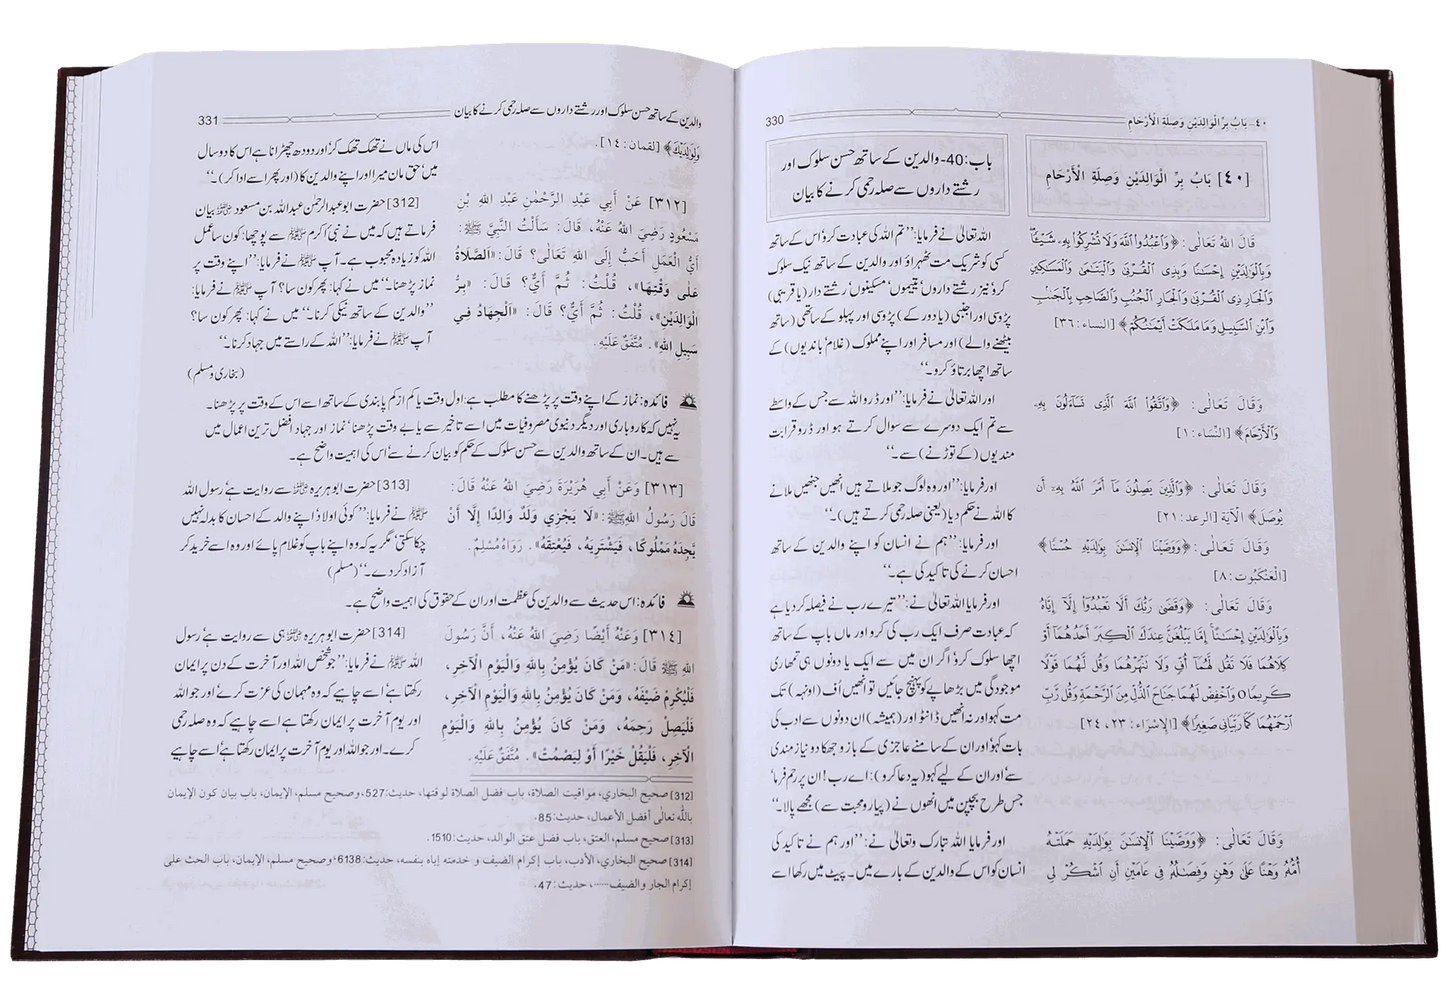 ٤٠- بَابُ بِرِّ الْوَالِدَيْنِ وَصِلَةِ الْأَرْحَامِ
330
[٤٠] بَابُ بِرِّ الْوَالِدَيْنِ وَصِلَةِ الْأَرْحَامِ
باب:40- والدین کے ساتھ حسن سلوک اور
رشتے داروں سے صلہ رحمی کرنے کا بیان
قَالَ اللهُ تَعَالٰى: ﴿وَٱعْبُدُوا۟ ٱللَّهَ وَلَا تُشْرِكُوا۟ بِهِۦ شَيْـًٔا
وَبِٱلْوَٰلِدَيْنِ إِحْسَـٰنًا وَبِذِى ٱلْقُرْبَىٰ وَٱلْيَتَـٰمَىٰ وَٱلْمَسَـٰكِينِ
وَٱلْجَارِ ذِى ٱلْقُرْبَىٰ وَٱلْجَارِ ٱلْجُنُبِ وَٱلصَّاحِبِ بِٱلْجَنۢبِ
وَٱبْنِ ٱلسَّبِيلِ وَمَا مَلَكَتْ أَيْمَـٰنُكُمْ﴾ [النساء:٣٦]
وَقَالَ تَعَالٰى: ﴿وَٱتَّقُوا۟ ٱللَّهَ ٱلَّذِى تَسَآءَلُونَ بِهِۦ
وَٱلْأَرْحَامَ﴾ [النِّسَاء:١]
وَقَالَ تَعَالٰى: ﴿وَٱلَّذِينَ يَصِلُونَ مَآ أَمَرَ ٱللَّهُ بِهِۦٓ أَن
يُوصَلَ﴾ الْآيَةَ [الرعد:٢١]
وَقَالَ تَعَالٰى: ﴿وَوَصَّيْنَا ٱلْإِنسَـٰنَ بِوَٰلِدَيْهِ حُسْنًا﴾
[الْعَنْكَبُوت:٨]
وَقَالَ تَعَالٰى: ﴿وَقَضَىٰ رَبُّكَ أَلَّا تَعْبُدُوٓا۟ إِلَّآ إِيَّاهُ
وَبِٱلْوَٰلِدَيْنِ إِحْسَـٰنًا إِمَّا يَبْلُغَنَّ عِندَكَ ٱلْكِبَرَ أَحَدُهُمَآ أَوْ
كِلَاهُمَا فَلَا تَقُل لَّهُمَآ أُفٍّ وَلَا تَنْهَرْهُمَا وَقُل لَّهُمَا قَوْلًا
كَرِيمًا ○ وَٱخْفِضْ لَهُمَا جَنَاحَ ٱلذُّلِّ مِنَ ٱلرَّحْمَةِ وَقُل رَّبِّ
ٱرْحَمْهُمَا كَمَا رَبَّيَانِى صَغِيرًا﴾ [الإِسْرَاء:٢٣، ٢٤]
وَقَالَ تَعَالٰى: ﴿وَوَصَّيْنَا ٱلْإِنسَـٰنَ بِوَٰلِدَيْهِ حَمَلَتْهُ
أُمُّهُۥ وَهْنًا عَلَىٰ وَهْنٍ وَفِصَـٰلُهُۥ فِى عَامَيْنِ أَنِ ٱشْكُرْ لِى
اللہ تعالیٰ نے فرمایا: ”تم اللہ کی عبادت کرو اُس کے ساتھ
کسی کو شریک مت ٹھہراؤ اور والدین کے ساتھ نیک سلوک
کرو نیز رشتے داروں، یتیموں، مسکینوں، رشتے دار (یا قریبی)
پڑوسی اور اجنبی (یا دور کے) پڑوسی اور پہلو کے ساتھی (ساتھ
بیٹھنے والے) اور مسافر اور اپنے مملوک (غلام، باندیوں) کے
ساتھ اچھا برتاؤ کرو۔“
اور اللہ تعالیٰ نے فرمایا: ”اور ڈرو اللہ سے جس کے واسطے
سے تم ایک دوسرے سے سوال کرتے ہو اور ڈرو قرابت
مندیوں (کے توڑنے) سے۔“
اور فرمایا: ”اور وہ لوگ جو ملاتے ہیں انھیں جنھیں ملانے
کا اللہ نے حکم دیا (یعنی صلہ رحمی کرتے ہیں)۔“
اور فرمایا: ”ہم نے انسان کو اپنے والدین کے ساتھ
احسان کرنے کی تاکید کی ہے۔“
اور فرمایا اللہ تعالیٰ نے: ”تیرے رب نے فیصلہ کر دیا ہے
کہ عبادت صرف ایک رب کی کرو اور ماں باپ کے ساتھ
اچھا سلوک کرو، اگر ان میں سے ایک یا دونوں ہی تمھاری
موجودگی میں بڑھاپے کو پہنچ جائیں تو انھیں اُف (اونہہ) تک
مت کہو اور نہ انھیں ڈانٹو اور (ہمیشہ) ان دونوں سے ادب کی
بات کہو اور ان کے سامنے عاجزی کے بازو جھکا دو نیاز مندی
سے، اور ان کے لیے کہو (یہ دعا کرو): اے رب! ان پر رحم فرما
جس طرح بچپن میں انھوں نے (پیار و محبت سے) مجھے پالا۔“
اور فرمایا اللہ تبارک وتعالیٰ نے: ”اور ہم نے تاکید کی
انسان کو اس کے والدین کے بارے میں۔ پیٹ میں رکھا اسے
والدین کے ساتھ حسن سلوک اور رشتے داروں سے صلہ رحمی کرنے کا بیان
331
وَلِوَٰلِدَيْكَ﴾ [لقمان:١٤].
[٣١٢] عَنْ أَبِي عَبْدِ الرَّحْمٰنِ عَبْدِ اللهِ بْنِ
مَسْعُودٍ رَضِيَ اللهُ عَنْهُ، قَالَ: سَأَلْتُ النَّبِيَّ ﷺ:
أَيُّ الْعَمَلِ أَحَبُّ إِلَى اللهِ تَعَالٰى؟ قَالَ: «الصَّلَاةُ
عَلٰى وَقْتِهَا»، قُلْتُ: ثُمَّ أَيٌّ؟ قَالَ: «بِرُّ
الْوَالِدَيْنِ»، قُلْتُ: ثُمَّ أَيٌّ؟ قَالَ: «الْجِهَادُ فِي
سَبِيلِ اللهِ». مُتَّفَقٌ عَلَيْهِ.
اس کی ماں نے تھک تھک کر، اور دودھ چھڑانا ہے اس کا دو سال
میں، حق مان میرا اور اپنے والدین کا (اور پھر اسے ادا کر)۔“
[312] حضرت ابوعبدالرحمٰن عبداللہ بن مسعود رضی اللہ عنہ بیان
فرماتے ہیں کہ میں نے نبی اکرم ﷺ سے پوچھا: کون سا عمل
اللہ کو زیادہ محبوب ہے۔ آپ ﷺ نے فرمایا: ”اپنے وقت پر
نماز پڑھنا۔“ میں نے کہا: پھر کون سا؟ آپ ﷺ نے فرمایا:
”والدین کے ساتھ نیکی کرنا۔“ میں نے کہا: پھر کون سا؟
آپ ﷺ نے فرمایا: ”اللہ کے راستے میں جہاد کرنا۔“
(بخاری و مسلم)
فائدہ: نماز کے اپنے وقت پر پڑھنے کا مطلب ہے: اول وقت یا کم از کم پابندی کے ساتھ اسے اس کے وقت پر پڑھنا۔
یہ نہیں کہ کاروباری اور دیگر دنیوی مصروفیات میں اسے تاخیر سے یا بے وقت پڑھنا، نماز اور جہاد افضل ترین اعمال میں
سے ہیں۔ ان کے ساتھ والدین سے حسن سلوک کے حکم کو بیان کرنے سے اس کی اہمیت واضح ہے۔
[٣١٣] وَعَنْ أَبِي هُرَيْرَةَ رَضِيَ اللهُ عَنْهُ قَالَ:
قَالَ رَسُولُ اللهِ ﷺ: «لَا يَجْزِي وَلَدٌ وَالِدًا إِلَّا أَنْ
يَجِدَهُ مَمْلُوكًا، فَيَشْتَرِيَهُ، فَيُعْتِقَهُ». رَوَاهُ مُسْلِمٌ.
[313] حضرت ابوہریرہ رضی اللہ عنہ سے روایت ہے، رسول اللہ
ﷺ نے فرمایا: ”کوئی اولاد اپنے والد کے احسان کا بدلہ نہیں
چکا سکتی، مگر یہ کہ وہ اپنے باپ کو غلام پائے اور وہ اسے خرید کر
آزاد کر دے۔“ (مسلم)
فائدہ: اس حدیث سے والدین کی عظمت اور ان کے حقوق کی اہمیت واضح ہے۔
[٣١٤] وَعَنْهُ أَيْضًا رَضِيَ اللهُ عَنْهُ، أَنَّ رَسُولَ
اللهِ ﷺ قَالَ: «مَنْ كَانَ يُؤْمِنُ بِاللهِ وَالْيَوْمِ الْآخِرِ،
فَلْيُكْرِمْ ضَيْفَهُ، وَمَنْ كَانَ يُؤْمِنُ بِاللهِ وَالْيَوْمِ الْآخِرِ،
فَلْيَصِلْ رَحِمَهُ، وَمَنْ كَانَ يُؤْمِنُ بِاللهِ وَالْيَوْمِ
الْآخِرِ، فَلْيَقُلْ خَيْرًا أَوْ لِيَصْمُتْ». مُتَّفَقٌ عَلَيْهِ.
[314] حضرت ابوہریرہ رضی اللہ عنہ ہی سے روایت ہے، رسول
اللہ ﷺ نے فرمایا: ”جو شخص اللہ اور آخرت کے دن پر ایمان
رکھتا ہے، اسے چاہیے کہ وہ مہمان کی عزت کرے اور جو اللہ
اور یوم آخرت پر ایمان رکھتا ہے اسے چاہیے کہ وہ صلہ رحمی
کرے۔ اور جو اللہ اور یوم آخرت پر ایمان رکھتا ہے، اسے چاہیے
[312] صحيح البخاري، مواقيت الصلاة، باب فضل الصلاة لوقتها، حديث:527، وصحيح مسلم، الإيمان، باب بيان كون الإيمان
بالله تعالى أفضل الأعمال، حديث:85.
[313] صحيح مسلم، العتق، باب فضل عتق الوالد، حديث:1510.
[314] صحيح البخاري، الأدب، باب إكرام الضيف و خدمته إياه بنفسه، حديث:6138، وصحيح مسلم، الإيمان، باب الحث على
إكرام الجار والضيف.....، حديث:47.